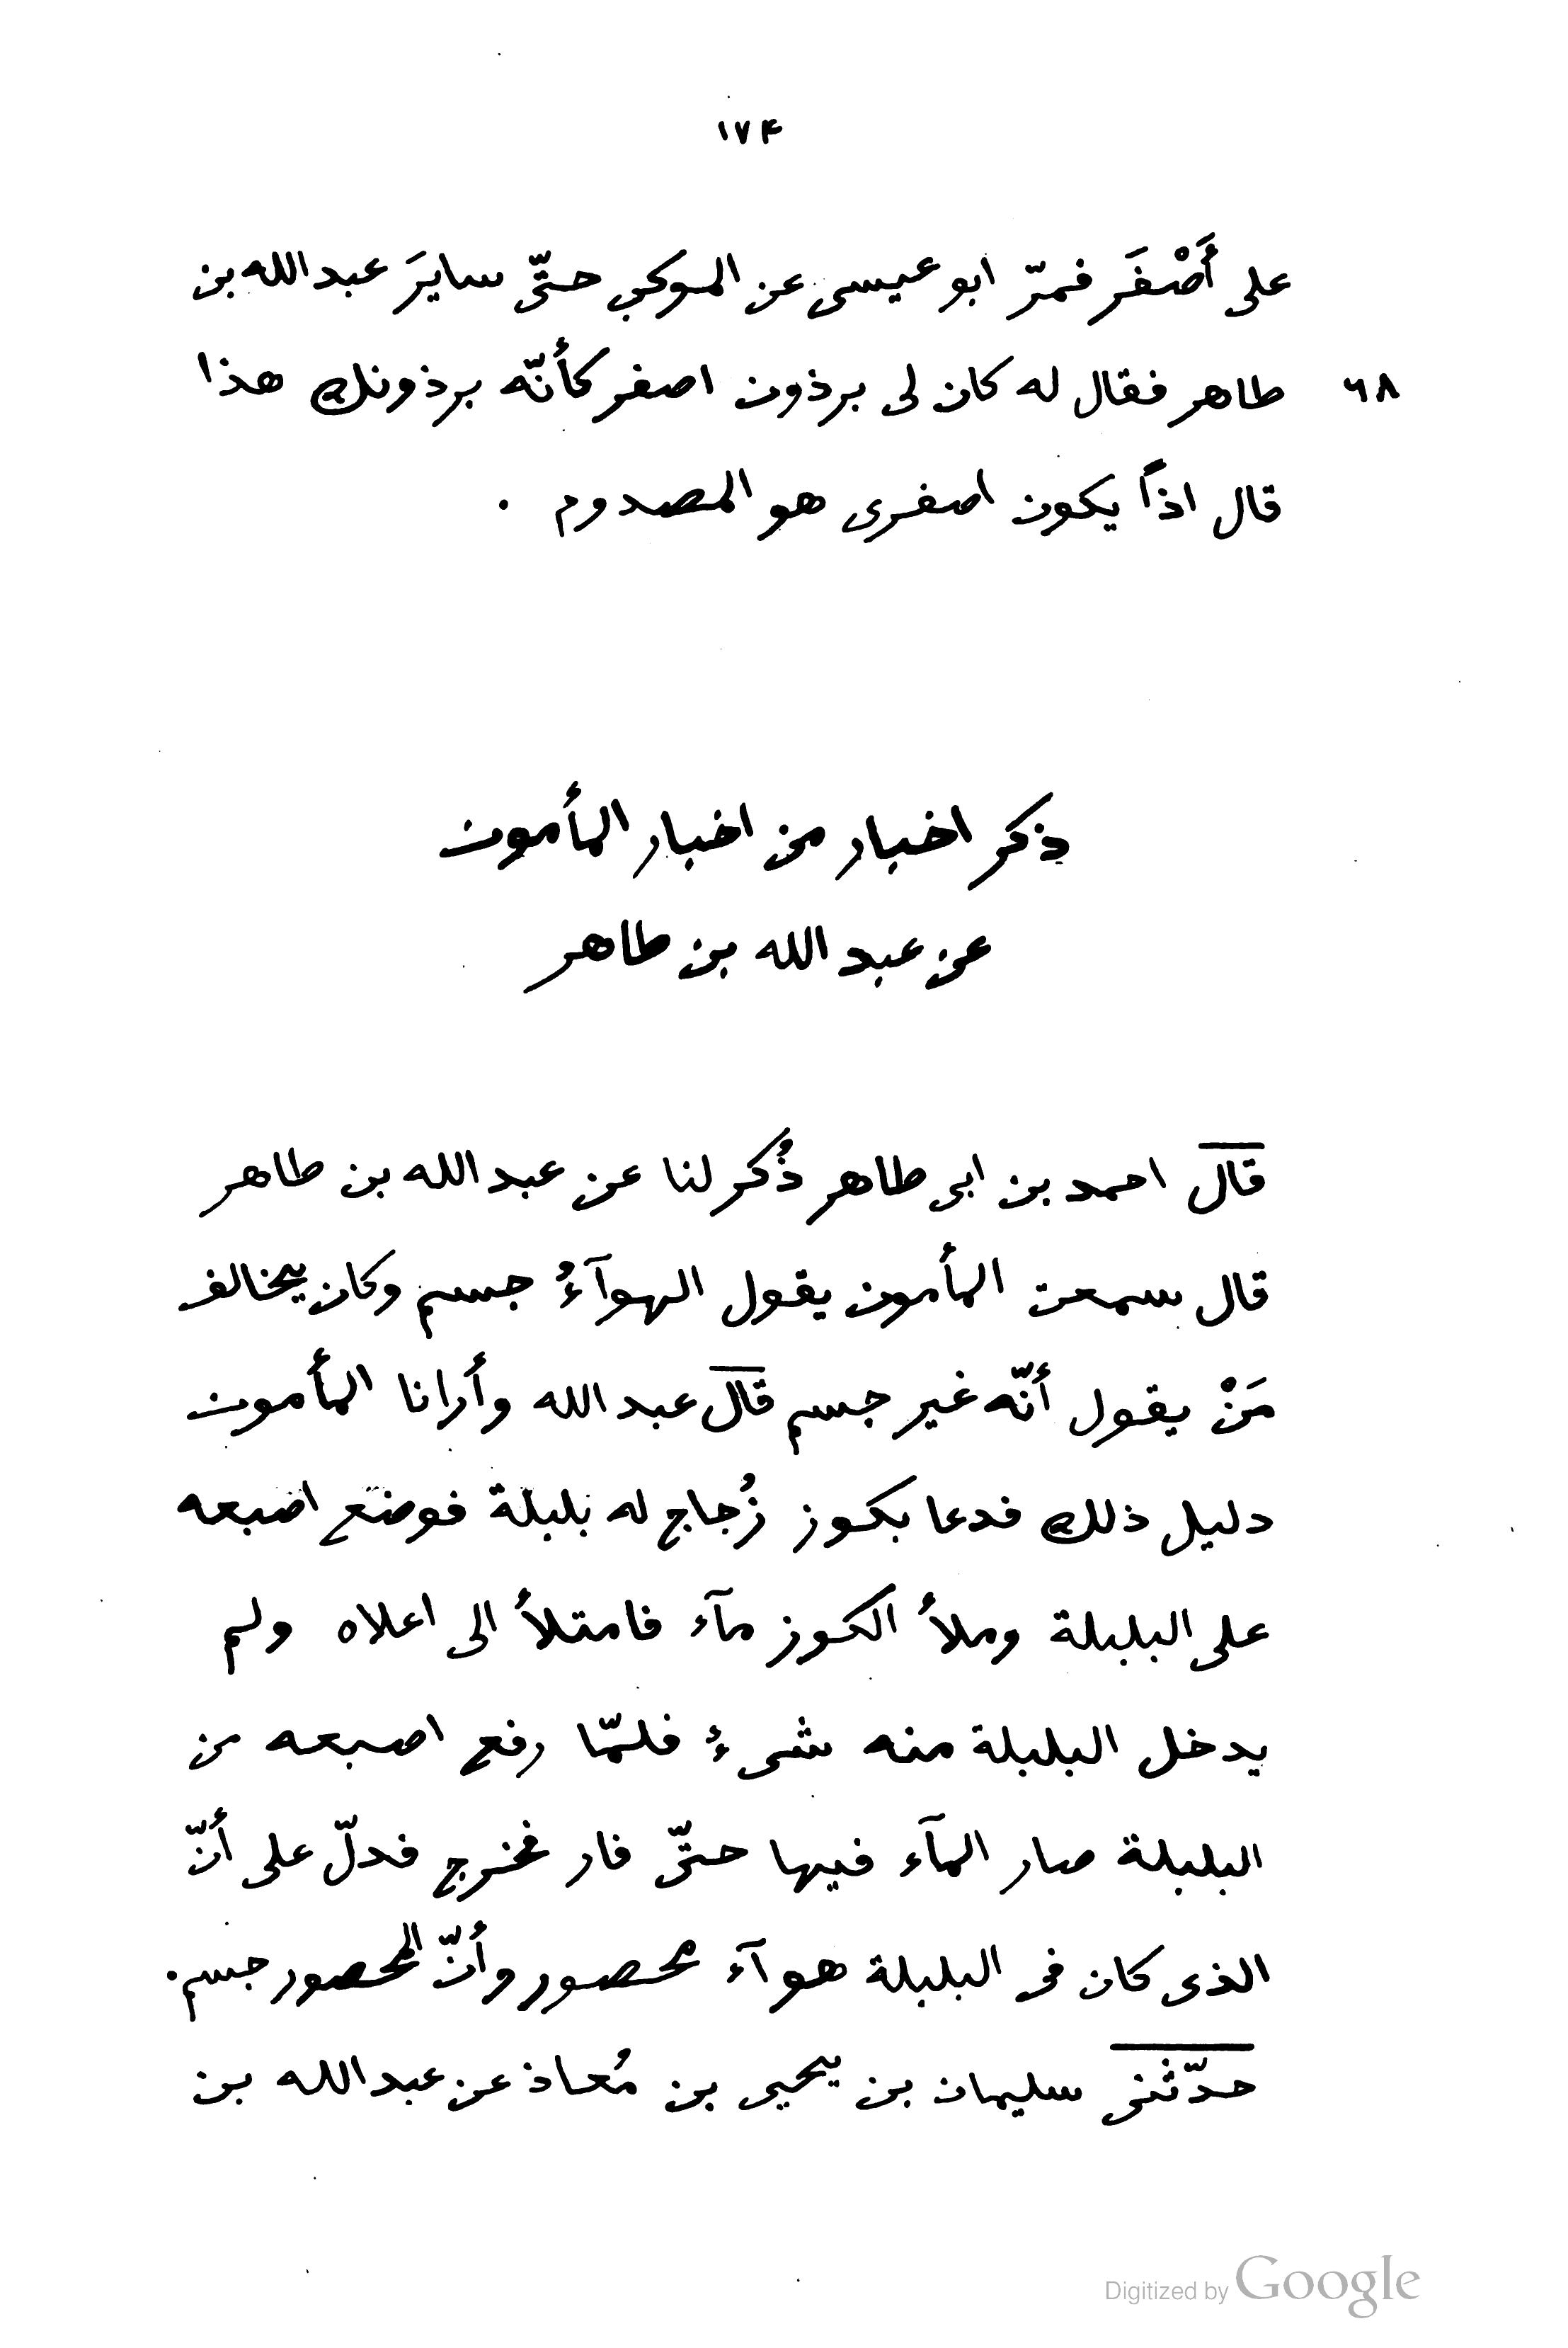 ١٧۴
على أَصْفَر فمرّ ابو عيسى عن الموكب حتّى سايَرَ عبد الله بن
٦٨ طاهر فقال له كان لى برذون اصفر كأنّه برذونك هذا
قال اذاً يكون اصفرى هو المصدوم .
ذكر اخبار من اخبار المأمون
عن عبد الله بن طاهر
قال احمد بن ابى طاهر ذُكر لنا عن عبد الله بن طاهر
قال سمعت المأمون يقول الهوآءُ جسم وكان يخالف
مَنْ يقول أنّه غير جسم قال عبد الله وأرانا المأمون
دليل ذلك فدعا بكوز زُجاج له بلبلة فوضع اصبعه
على البلبلة وملأ الكوز مآء فامتلأ الى اعلاه ولم
يدخل البلبلة منه شىءٌ فلمّا رفع اصبعه من
البلبلة صار المآء فيها حتّى فار فخرج فدلّ على أنّ
الذى كان فى البلبلة هوآء محصور وأنّ المحصور جسم.
حدّثنى سليمان بن يحيى بن مُعاذ عن عبد الله بن
Digitized by Google